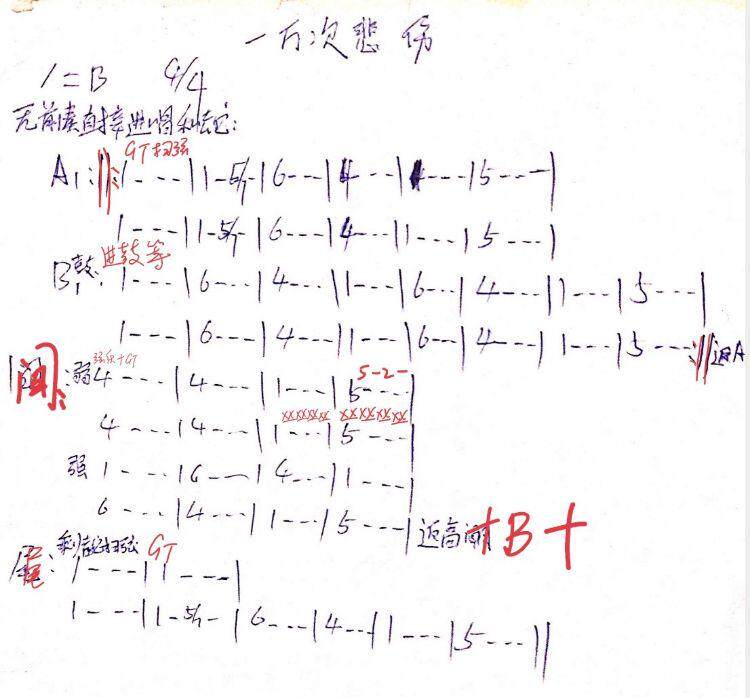 一万次悲伤
1=B 4/4
无前奏直接进唱和弦:
GT扫弦
A1: ||: 1 - - - | 1 - 5/7 | 6 - - - | 4 - - - | 1 - - - | 5 - - - |
1 - - - | 1 - 5/7 | 6 - - - | 4 - - - | 1 - - - | 5 - - - |
进鼓等
B1鼓: 1 - - - | 6 - - - | 4 - - - | 1 - - - | 6 - - | 4 - - - | 1 - - - | 5 - - - |
1 - - - | 6 - - - | 4 - - - | 1 - - - | 6 - - | 4 - - - | 1 - - - | 5 - - - :|| 返A
+GT 5-2-
间: 弱 4 - - - | 4 - - - | 1 - - - | 5 - - - |
XXXXXX XXXXXX
4 - - - | 4 - - - | 1 - - - | 5 - - - |
强 1 - - - | 6 - - - | 4 - - - | 1 - - - |
6 - - - | 4 - - - | 1 - - - | 5 - - - | 返高 +B+
剩 扫弦 GT
尾: 1 - - - | 1 - - - |
1 - - - | 1 - 5/7 - | 6 - - - | 4 - - - | 1 - - - | 5 - - - ||